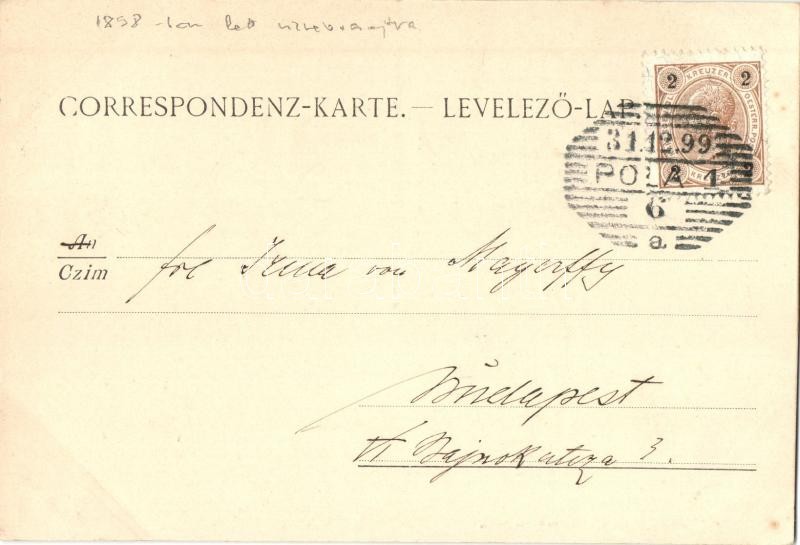 1898-ban lett
CORRESPONDENZ-KARTE. — LEVELEZŐ-LAP
2 KREUZER 2
2 KREUZER
31.12.99
POLA 1
6
a
An
Czim
frl Irma von Mayerffy
Budapest
VI Bajnokutcza 3.